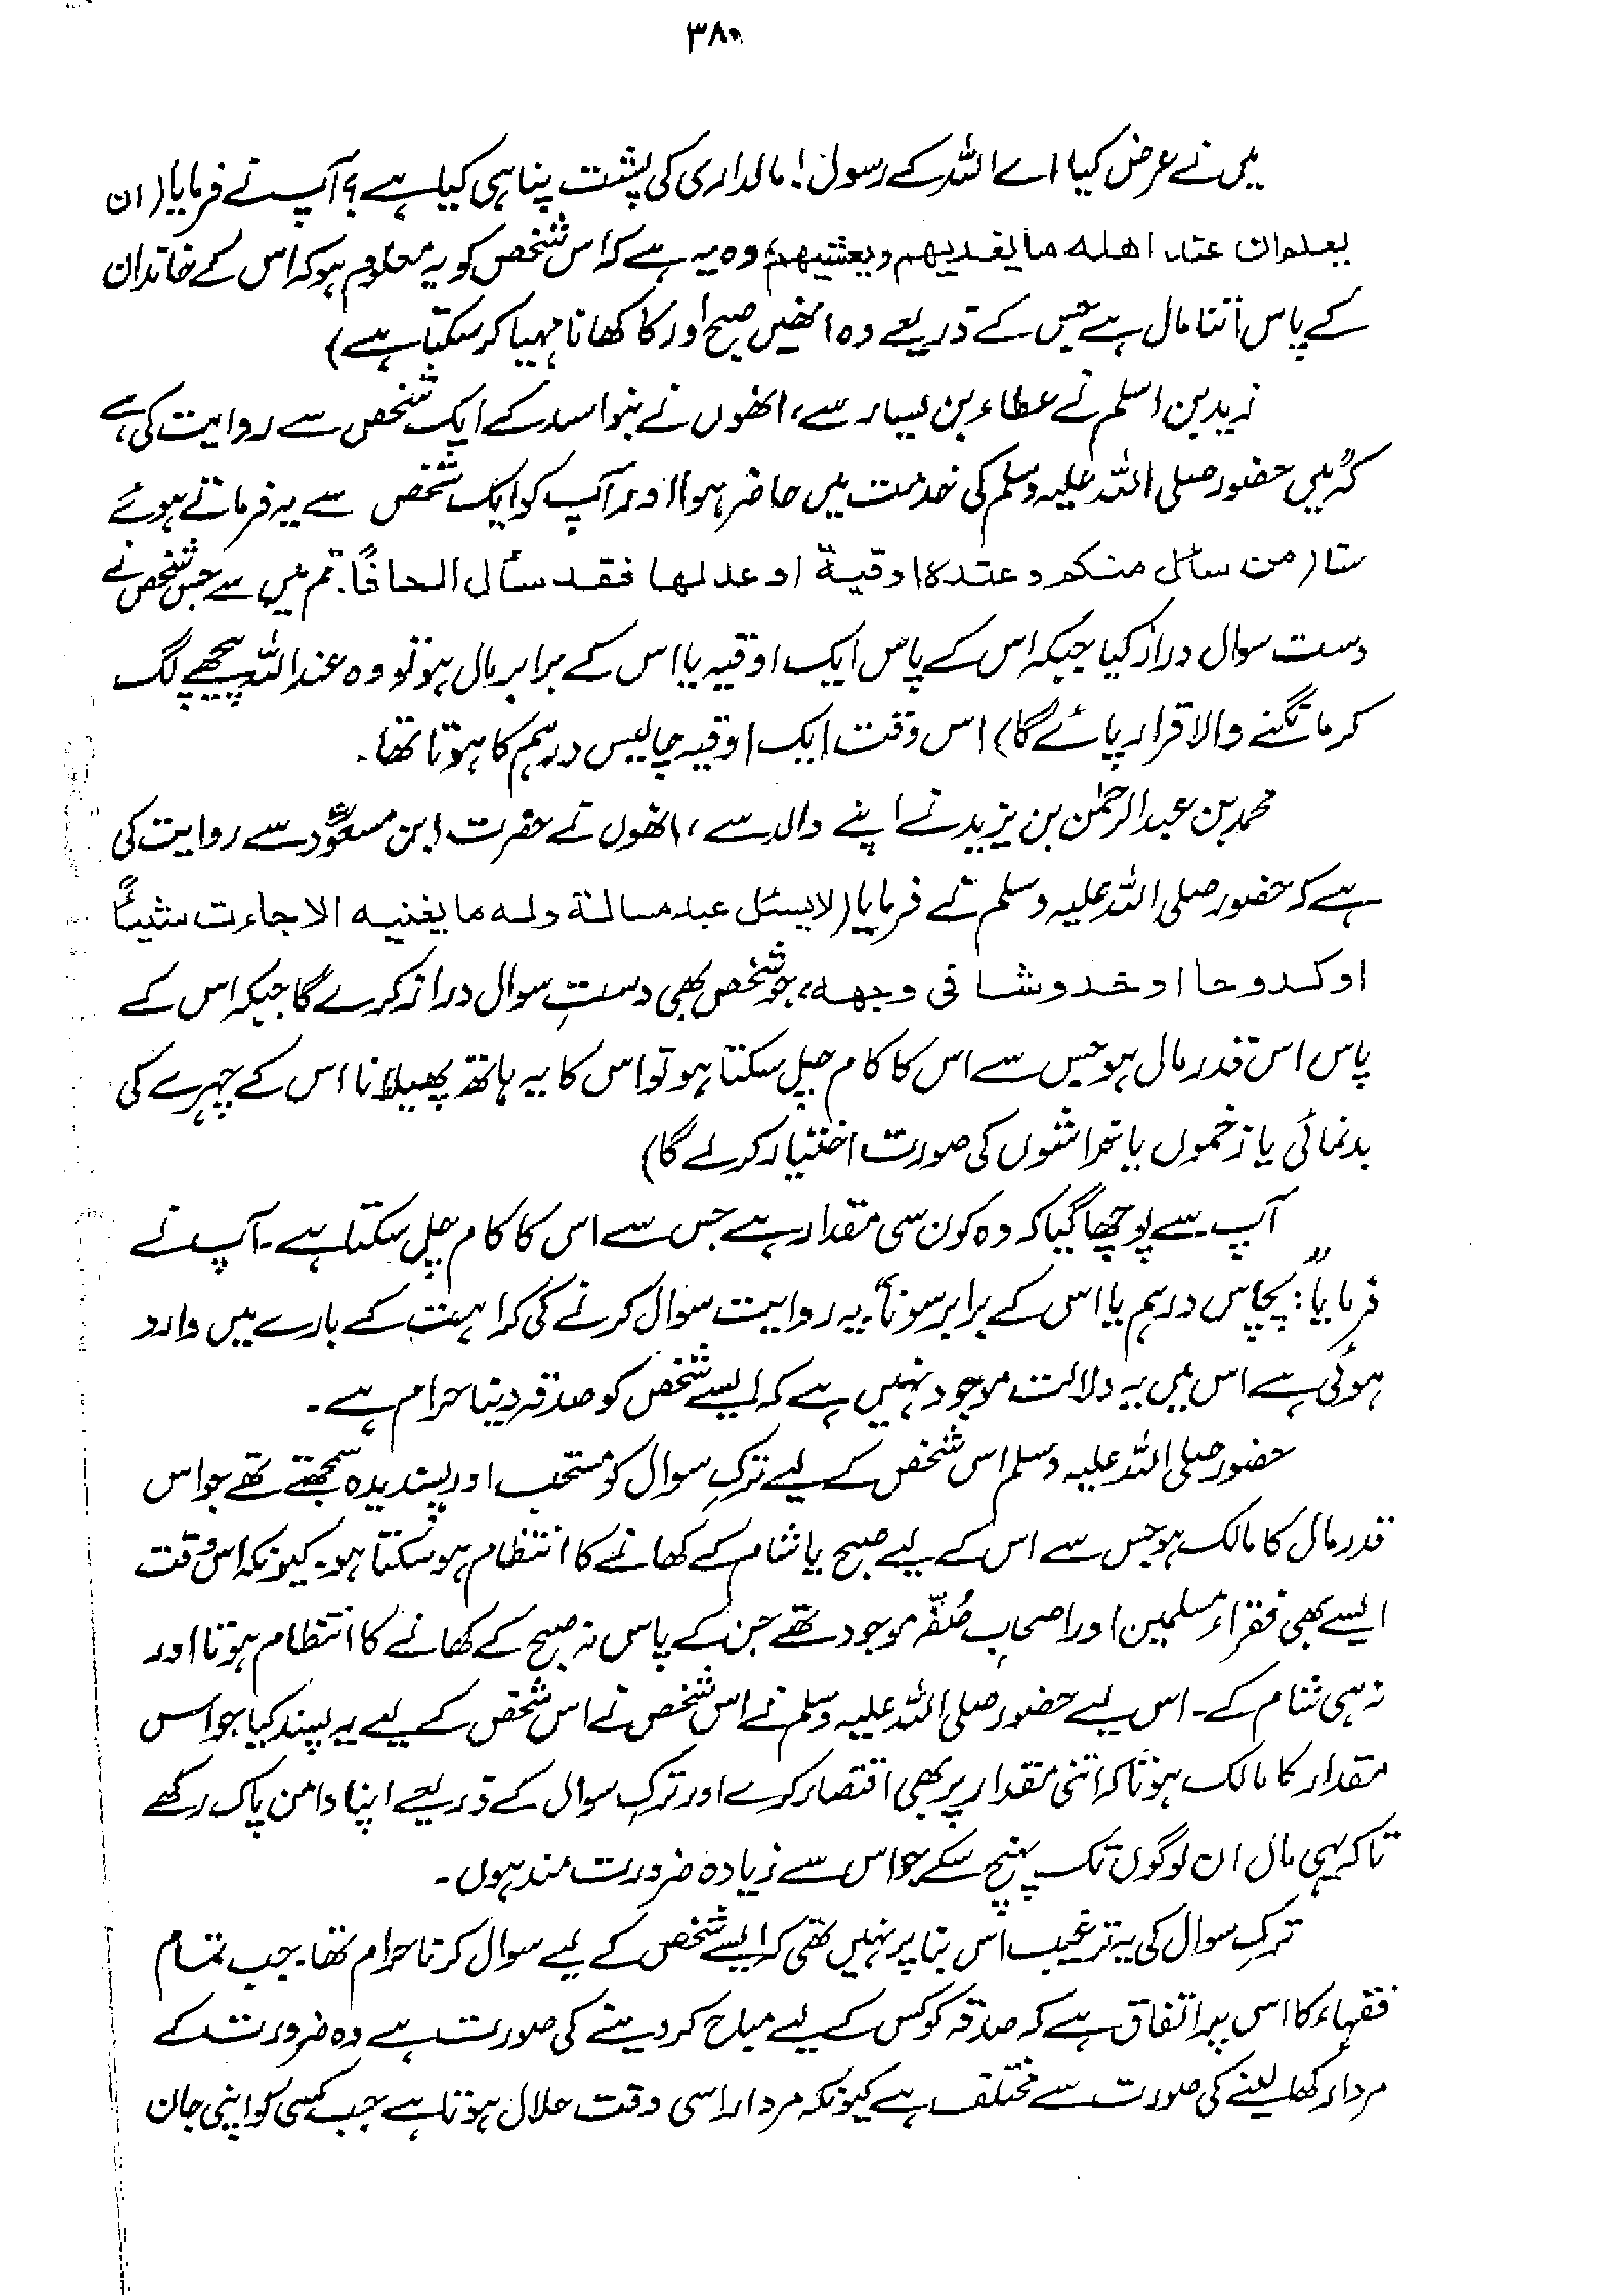 ۳۸۰
میں نے عرض کیا اے اللہ کے رسول! مالداری کی پشت پناہی کیا ہے؟ آپ نے فرمایا (ان
یعلوان عتد اهله ما یغدیهم ویعشیهم، وہ یہ ہے کہ اس شخص کو یہ معلوم ہو کہ اس کے خاندان
کے پاس اتنا مال ہے جس کے ذریعے وہ انھیں صبح اور کا کھانا مہیا کر سکتا ہے)
زید بن اسلم نے عطاء بن یسار سے، انھوں نے بنو اسد کے ایک شخص سے روایت کی ہے
کہ ”میں حضور صلی اللہ علیہ وسلم کی خدمت میں حاضر ہوا اور آپ کو ایک شخص سے یہ فرماتے ہوئے
سنا (من سأل منکم وعنده اوقیة او عدلها فقد سأل الحافًا۔ تم میں سے جس شخص نے
دست سوال دراز کیا جبکہ اس کے پاس ایک اوقیہ یا اس کے برابر مال ہو تو وہ عند اللہ پیچھے لگ
کر مانگنے والا قرار پائے گا) اس وقت ایک اوقیہ چالیس درہم کا ہوتا تھا۔
محمد بن عبدالرحمٰن بن یزید نے اپنے والد سے، انھوں نے حضرت ابن مسعودؓ سے روایت کی
ہے کہ حضور صلی اللہ علیہ وسلم نے فرمایا (لا یسئل عبد مسالة وله ما یغنیه الا جاءت شیئاً
او کدوحا او خدوشا فی وجهه، جو شخص بھی دستِ سوال دراز کرے گا جبکہ اس کے
پاس اس قدر مال ہو جس سے اس کا کام چل سکتا ہو تو اس کا یہ ہاتھ پھیلانا اس کے چہرے کی
بدنمائی یا زخموں یا خراشوں کی صورت اختیار کرلے گا)
آپ سے پوچھا گیا کہ وہ کون سی مقدار ہے جس سے اس کا کام چل سکتا ہے۔ آپ نے
فرمایا: ”پچاس درہم یا اس کے برابر سونا“ یہ روایت سوال کرنے کی کراہت کے بارے میں وارد
ہوئی ہے اس میں یہ دلالت موجود نہیں ہے کہ ایسے شخص کو صدقہ دینا حرام ہے۔
حضور صلی اللہ علیہ وسلم اس شخص کے لیے ترکِ سوال کو مستحب اور پسندیدہ سمجھتے تھے جو اس
قدر مال کا مالک ہو جس سے اس کے لیے صبح یا شام کے کھانے کا انتظام ہو سکتا ہو۔ کیونکہ اس وقت
ایسے بھی فقراء مسلمین اور اصحابِ صُفّہ موجود تھے جن کے پاس نہ صبح کے کھانے کا انتظام ہوتا اور
نہ ہی شام کے۔ اس لیے حضور صلی اللہ علیہ وسلم نے اس شخص نے اس شخص کے لیے یہ پسند کیا جو اس
مقدار کا مالک ہو تاکہ اتنی مقدار پر بھی اقتصار کرے اور ترکِ سوال کے ذریعے اپنا دامن پاک رکھے
تاکہ یہی مال ان لوگوں تک پہنچ سکے جو اس سے زیادہ ضرورت مند ہوں۔
ترکِ سوال کی یہ ترغیب اس بنا پر نہیں تھی کہ ایسے شخص کے لیے سوال کرنا حرام تھا۔ جب تمام
فقہاء کا اس پر اتفاق ہے کہ صدقہ کو کس کے لیے مباح کر دینے کی صورت ہے وہ ضرورت کے
مردار کھا لینے کی صورت سے مختلف ہے کیونکہ مردار اسی وقت حلال ہوتا ہے جب کسی کو اپنی جان